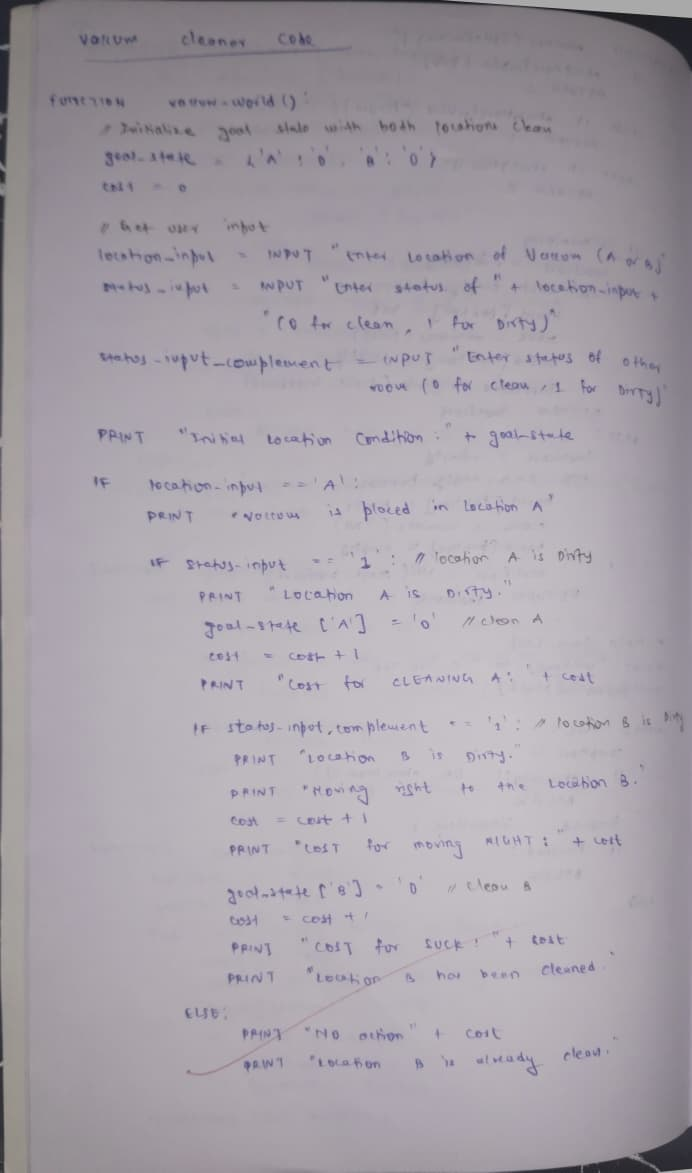 vaccum cleaner code
FUNCTION vaccum-world () :
// Initialize goal state with both locations clean
goal_state = {'A' : '0', 'B' : '0'}
cost = 0
// Get user input
location_input = INPUT "Enter Location of Vaccum (A or B)"
status_input = INPUT "Enter status of " + location_input +
"(0 for clean, 1 for Dirty)"
status_input_complement = INPUT "Enter status of other
room (0 for clean, 1 for Dirty)"
PRINT "Initial Location Condition : " + goal_state
IF location_input == 'A' :
PRINT "Vaccum is placed in Location A"
IF status-input == '1' : // location A is Dirty
PRINT "Location A is Dirty."
goal-state ['A'] = '0' // clean A
cost = cost + 1
PRINT "Cost for CLEANING A : " + cost
IF status-input_complement == '1' : // location B is Dirty
PRINT "Location B is Dirty."
PRINT "Moving right to the Location B."
cost = cost + 1
PRINT "COST for moving RIGHT : " + cost
goal_state ['B'] = '0' // clean B
cost = cost + 1
PRINT "COST for SUCK : " + cost
PRINT "Location B has been cleaned."
ELSE:
PRINT "NO action" + cost
PRINT "Location B is already clean."